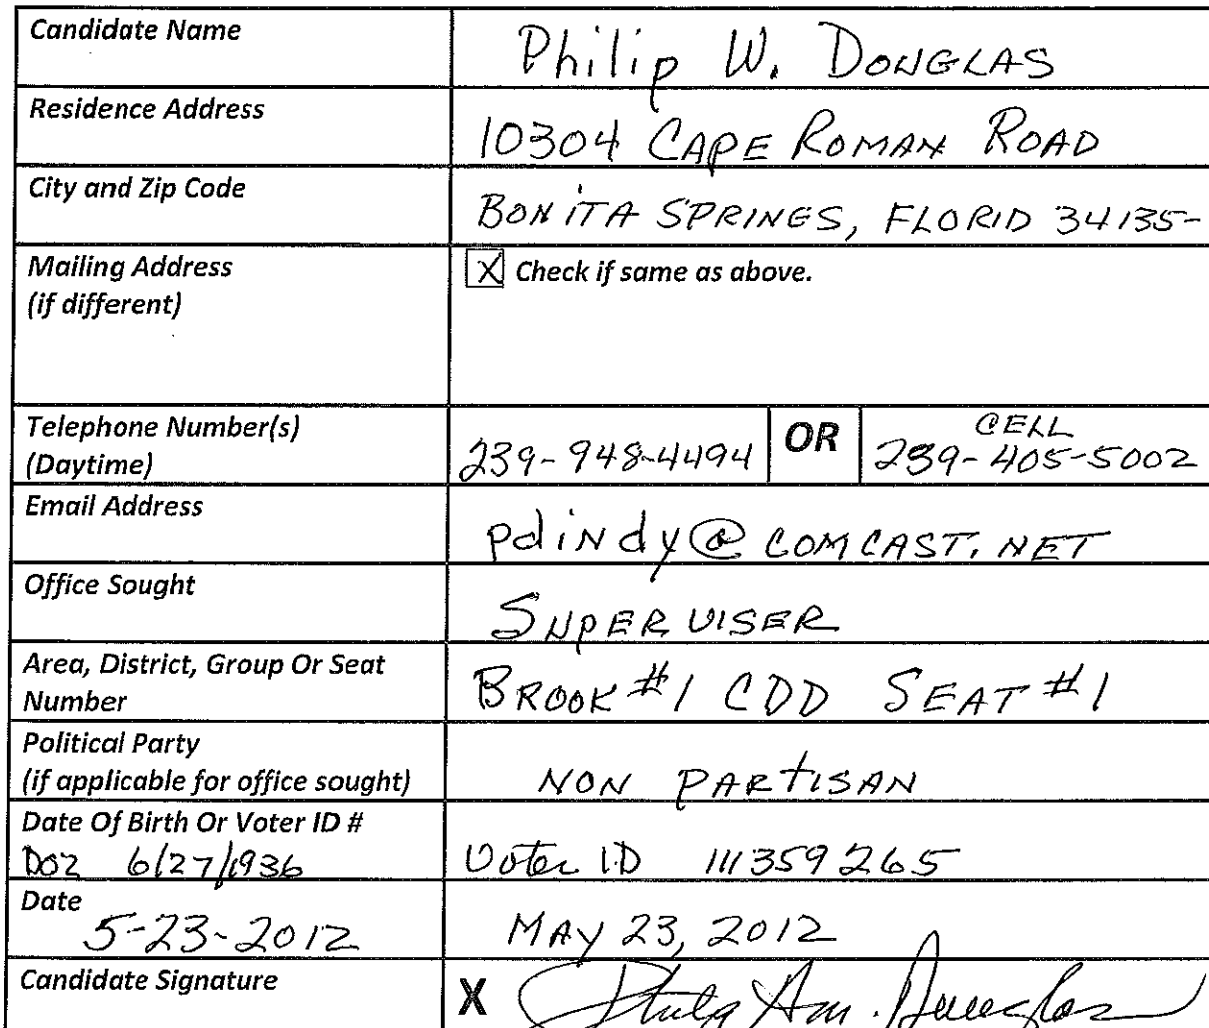 Candidate Name Philip W. DOUGLAS
Residence Address 10304 CAPE ROMAN ROAD
City and Zip Code BONITA SPRINGS, FLORID 34135-
Mailing Address X Check if same as above.
(if different)
Telephone Number(s) 239-948-4494 OR CELL
(Daytime) 239-405-5002
Email Address pdindy@COMCAST.NET
Office Sought SUPERVISER
Area, District, Group Or Seat BROOK #1 CDD SEAT #1
Number
Political Party
(if applicable for office sought) NON PARTISAN
Date Of Birth Or Voter ID #
DOZ 6/27/1936 Voter ID 111359265
Date
5-23-2012 MAY 23, 2012
Candidate Signature X